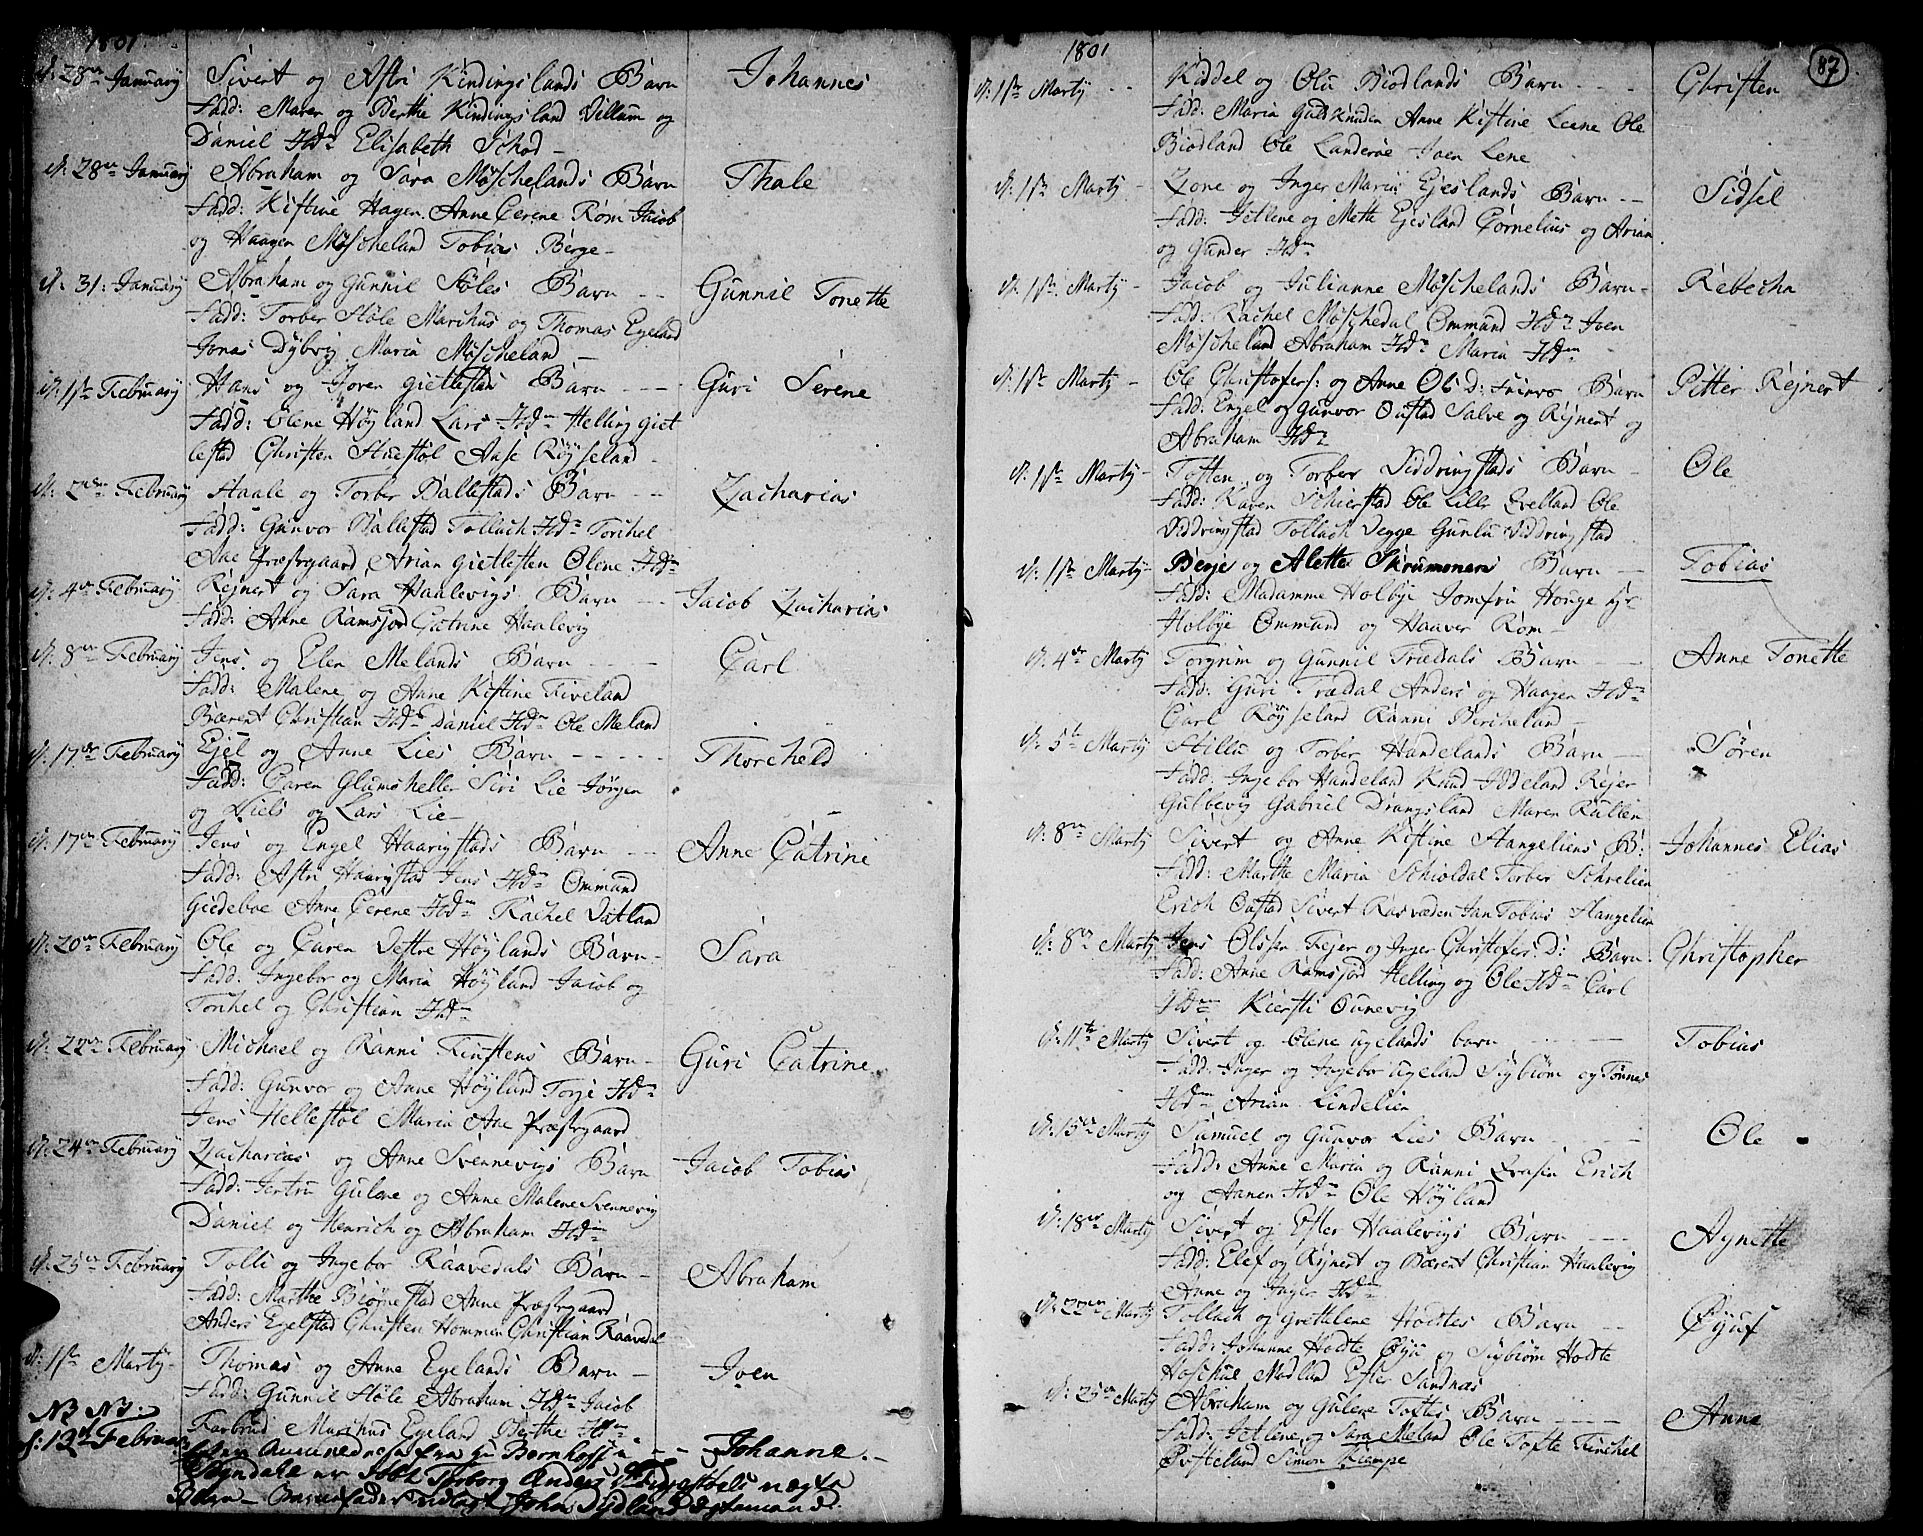 1801
d: 28de January Sivert og Astri Kindingslands Barn Johannes
Fadd: Maren og Berthe Kindingsland Villum og
Daniel Ibdm Elisabeth Schod
d: 28de January Abraham og Sara Møschelands Barn Thale
Fadd: Kistine Hagen Anne Cerene Rom Jacob
og Haagen Møscheland Tobias Berge
d: 31: January Abraham og Gunnil Støles Barn Gunnil Tonette
Fadd: Torber Støle Marchus og Thomas Egeland
Jonas Dybvig Maria Møscheland
d: 1ste February Hans og Joren Gietlestads Barn Guri Serene
Fadd: Olene Høyland Lars Ibdm Helling Giet
lestad Christen Stuestøl Aase Røyseland
d: 2den February Staale og Torber Ballestads Barn Zacharias
Fadd: Gunvor Ballestad Tollach Ibdm Torchel
Aae Præstegaard Arian Gietlesten Olene Ibdm
d: 4de February Rejnert og Sara Haalevigs Barn Jacob Zacharias
Fadd: Anne Ramsjord Catrine Haalevig
d: 8de February Jens og Elen Melands Barn Carl
Fadd: Malene og Anne Kistine Fiveland
Bærent Christian Ibdm Daniel Ibdm Ole Meland
d: 17de February Ejel og Anne Lies Barn Thorcheld
Fadd: Caren Glamsheller Siri Lie Jørgen
og Niels og Lars Lie
d: 17de February Jens og Engel Haarigstads Barn Anne Catrine
Fadd: Astri Haarigstad Jens Ibdm Ommund
Giedeboe Anne Cerene Ibdm Rachel Vatland
d: 20de February Ole og Caren Vestre Høylands Barn Sara
Fadd: Ingebor og Maria Høyland Jacob og
Torchel og Christian Ibdm
d: 22de February Michael og Ranni Finstens Barn Guri Catrine
Fadd: Gunvor og Anne Høyland Torje Ibdm
Jens Hellestøl Maria Aae Præstegaard
d: 24de February Zacharias og Anne Svennevigs Barn Jacob Tobias
Fadd: Jertru Gulene og Anne Malene Svennevig
Daniel og Henrich og Abraham Ibdm
d: 25de February Tolli og Ingebor Raavedals Barn Abraham
Fadd: Marthe Biørnestad Anne Præstegaard
Anders Egelstad Christen Hommen Christian Raavedal
d: 1ste Marty Thomas og Anne Egelands Barn Joen
Fadd: Gunnil Støle Abraham Ibdm Jacob
Farbrud Marchus Egeland Berthe Ibdm
NB NB:
d: 12te February fra Johanne
Anders
Barn John
1801
87
d: 1ste Marty Kiddel og Olu Biodlands Barn Christen
Fadd: Maria Guldknuden Anne Kistine Leene Ole
Biodland Ole Landeroe Joen Lene
d: 1ste Marty Zone og Inger Maria Ejeslands Barn Sidsel
Fadd: Jetlene og Mette Ejesland Cornelius og Arian
og Gunder Ibdm
d: 1ste Marty Jacob og Julianne Møschelands Barn Rebecha
Fadd: Rachel Møschedal Ommund Ibdm Joen
Møscheland Abraham Ibdm Maria Ibdm
d: 1ste Marty Ole Christofers: og Anne Ols D: Barn Pitter Rejnert
Fadd: Engel og Gunvor Oustad Salve og Rejnert og
Abraham Ibdm
d: 1ste Marty Tosten og Torber Viddringstads Barn Ole
Fadd: Karen Schierstad Ole Lille Qvelland Ole
Viddringstad Tollach Vegge Gunlu Viddringstad
d: 1ste Marty Berje og Alette Skrumonars Barn Tobias
Fadd: Madamme Holbye Jomfru Houge hr
Holbye Ommund og Haaver Rom
d: 4de Marty Torgrim og Gunnil Trædals Barn Anne Tonette
Fadd: Guri Trædal Anders og Haagen Ibdm
Carl Røyseland Ranni Bircheland
d: 5te Marty Stille og Torber Handelands Barn Søren
Fadd: Ingebor Handeland Knud Iddeland Rejer
Gulbevig Gabriel Drangsland Maren Rullen
d: 8de Marty Sivert og Anne Kistine Stangeliens B: Johannes Elias
Fadd: Marthe Maria Schioldal Torber Schrelien
Erich Oustad Sivert Rasvaden Jan Tobias Stangelien
d: 8de Marty Jens Olsen Fejer og Inger Christofers D: Barn Christopher
Fadd: Anne Ramsjord Helling og Ole Ibdm Carl
Ibdm Kiersti Ounevig
d: 11te Marty Sivert og Olene Ugelands barn Tobias
Fadd: Inger og Ingebor Ugeland Sigbiørn og Tønnes
Ibdm Arian Lindelien
d: 15de Marty Samuel og Gunvor Lies Barn Ole
Fadd: Anne Maria og Ranni Qvasen Erich
og Aanen Ibdm Ole Høyland
d: 18de Marty Sivert og Ester Haalevigs Barn Agnette
Fadd: Elef og Rejnert og Bærent Christian Haalevig
Anne og Inger Ibdm
d: 22den Marty Tollach og Grethelene Hodtes Barn Øyuf
Fadd: Johanne Hodte Øyu og Sigbiørn Hodte
Hoschul Modland Ester Sandnæs
d: 25de Marty Abraham og Gulene Toftes Barn Anne
Fadd: Jetlene og Sara Meland Ole Tofte Tirchel
Øvsteland Simon Kiempe